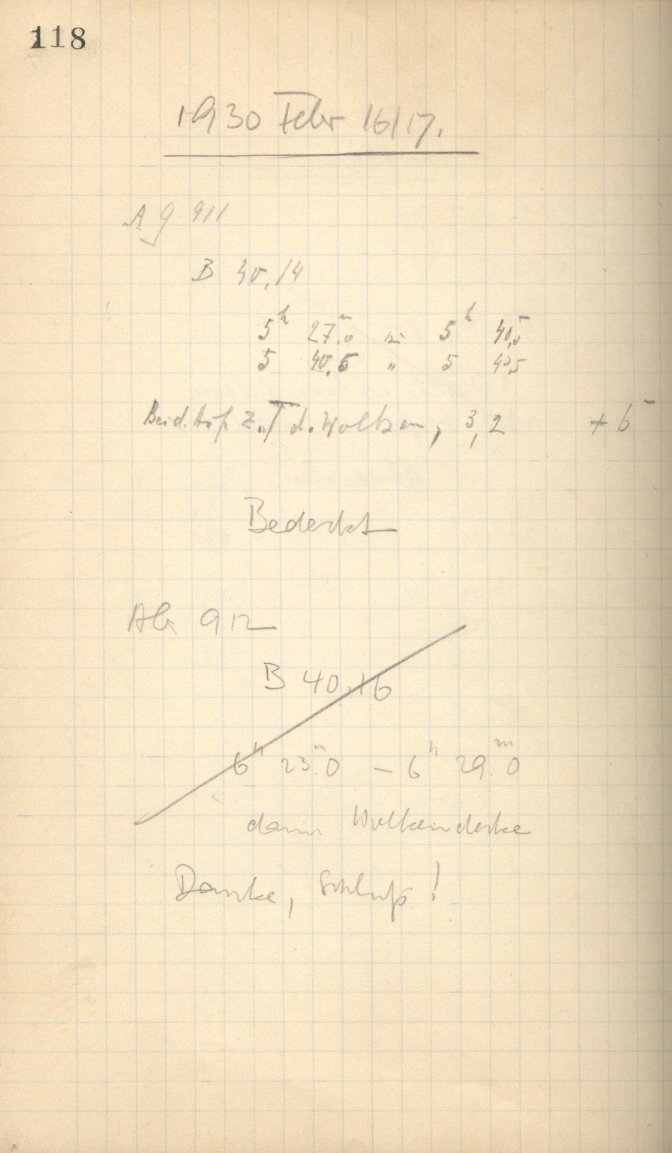 118
1930 Febr 16/17.
AG 911
B 40,14
5h 27m.0 5h 40,5
5 40.5 " 5
Beid. Auf. z.T. d. Wolken, 3,2 + 6m
Bedeckt
AG 912
B 40.16
6h 23m.0 – 6h 29m.0
dann Wolkendecke
Danke, Schluß!